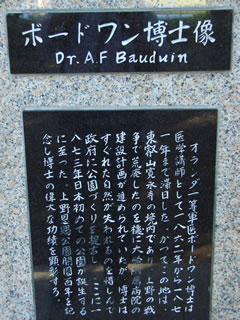 ボードワン博士像
Dr. A.F Bauduin
オランダ一等軍医ボードワン博士は
医学講師として一八六二年から一八七
一年まで滞日した かつてこの地は、
東叡山寛永寺の境内であり、上野の戦
争で荒廃したのを機に大学附属病院の
建設計画が進められていたが、博士は
すぐれた自然が失われるのを惜しんで
政府に公園づくりを提言し、ここに一
八七三年日本初めての公園が誕生する
に至った。上野恩賜公園開園百年を記
念し博士の偉大な功績を顕彰する。